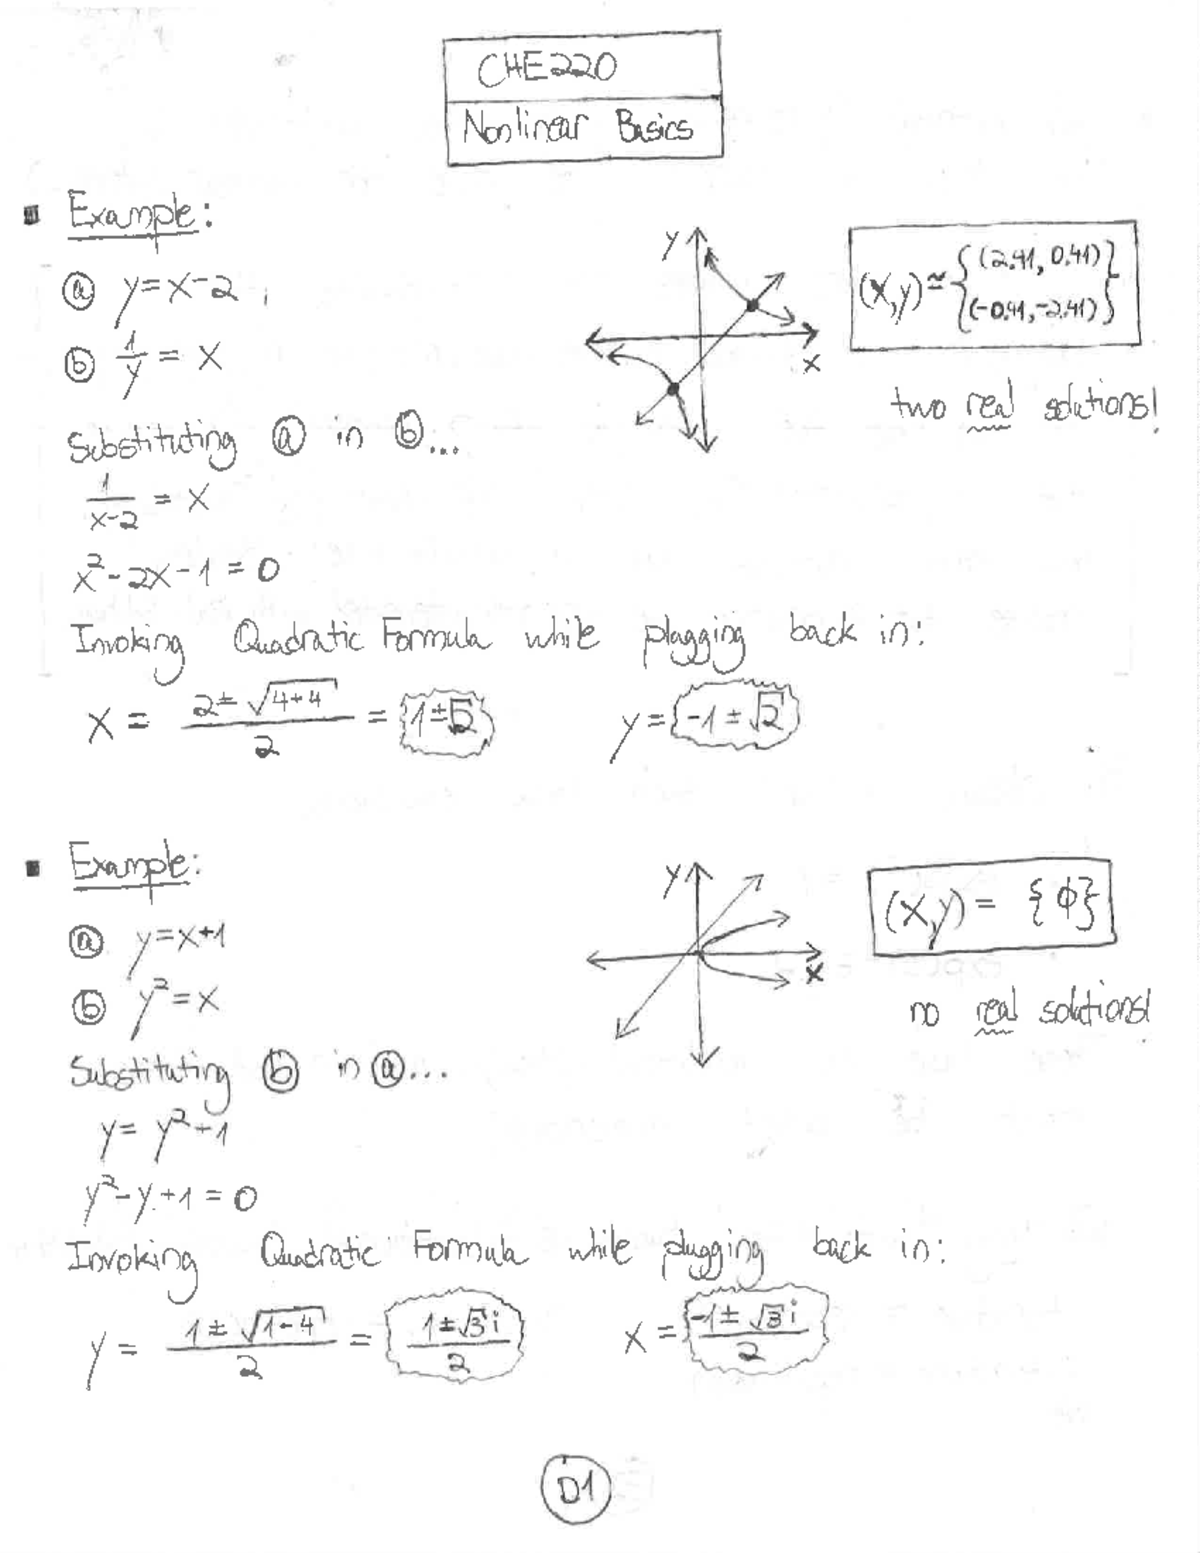 CHE220
Nonlinear Basics
Example:
ⓐ y=x-2
ⓑ 1/y = x
Substituting ⓐ in ⓑ...
1/(x-2) = x
x²-2x-1=0
Invoking Quadratic Formula while plugging back in:
x = (2± √(4+4))/2 = 1±√2 y = -1±√2
y
x
(x,y) ≅ { (2.41, 0.41)
(-0.41, -2.41) }
two real solutions!
Example:
ⓐ y=x+1
ⓑ y²=x
Substituting ⓑ in ⓐ...
y= y²+1
y²-y+1=0
Invoking Quadratic Formula while plugging back in:
y = (1± √(1-4))/2 = (1±√3 i)/2 x = (-1± √3 i)/2
y
x
(x,y) = {ϕ}
no real solutions!
D1